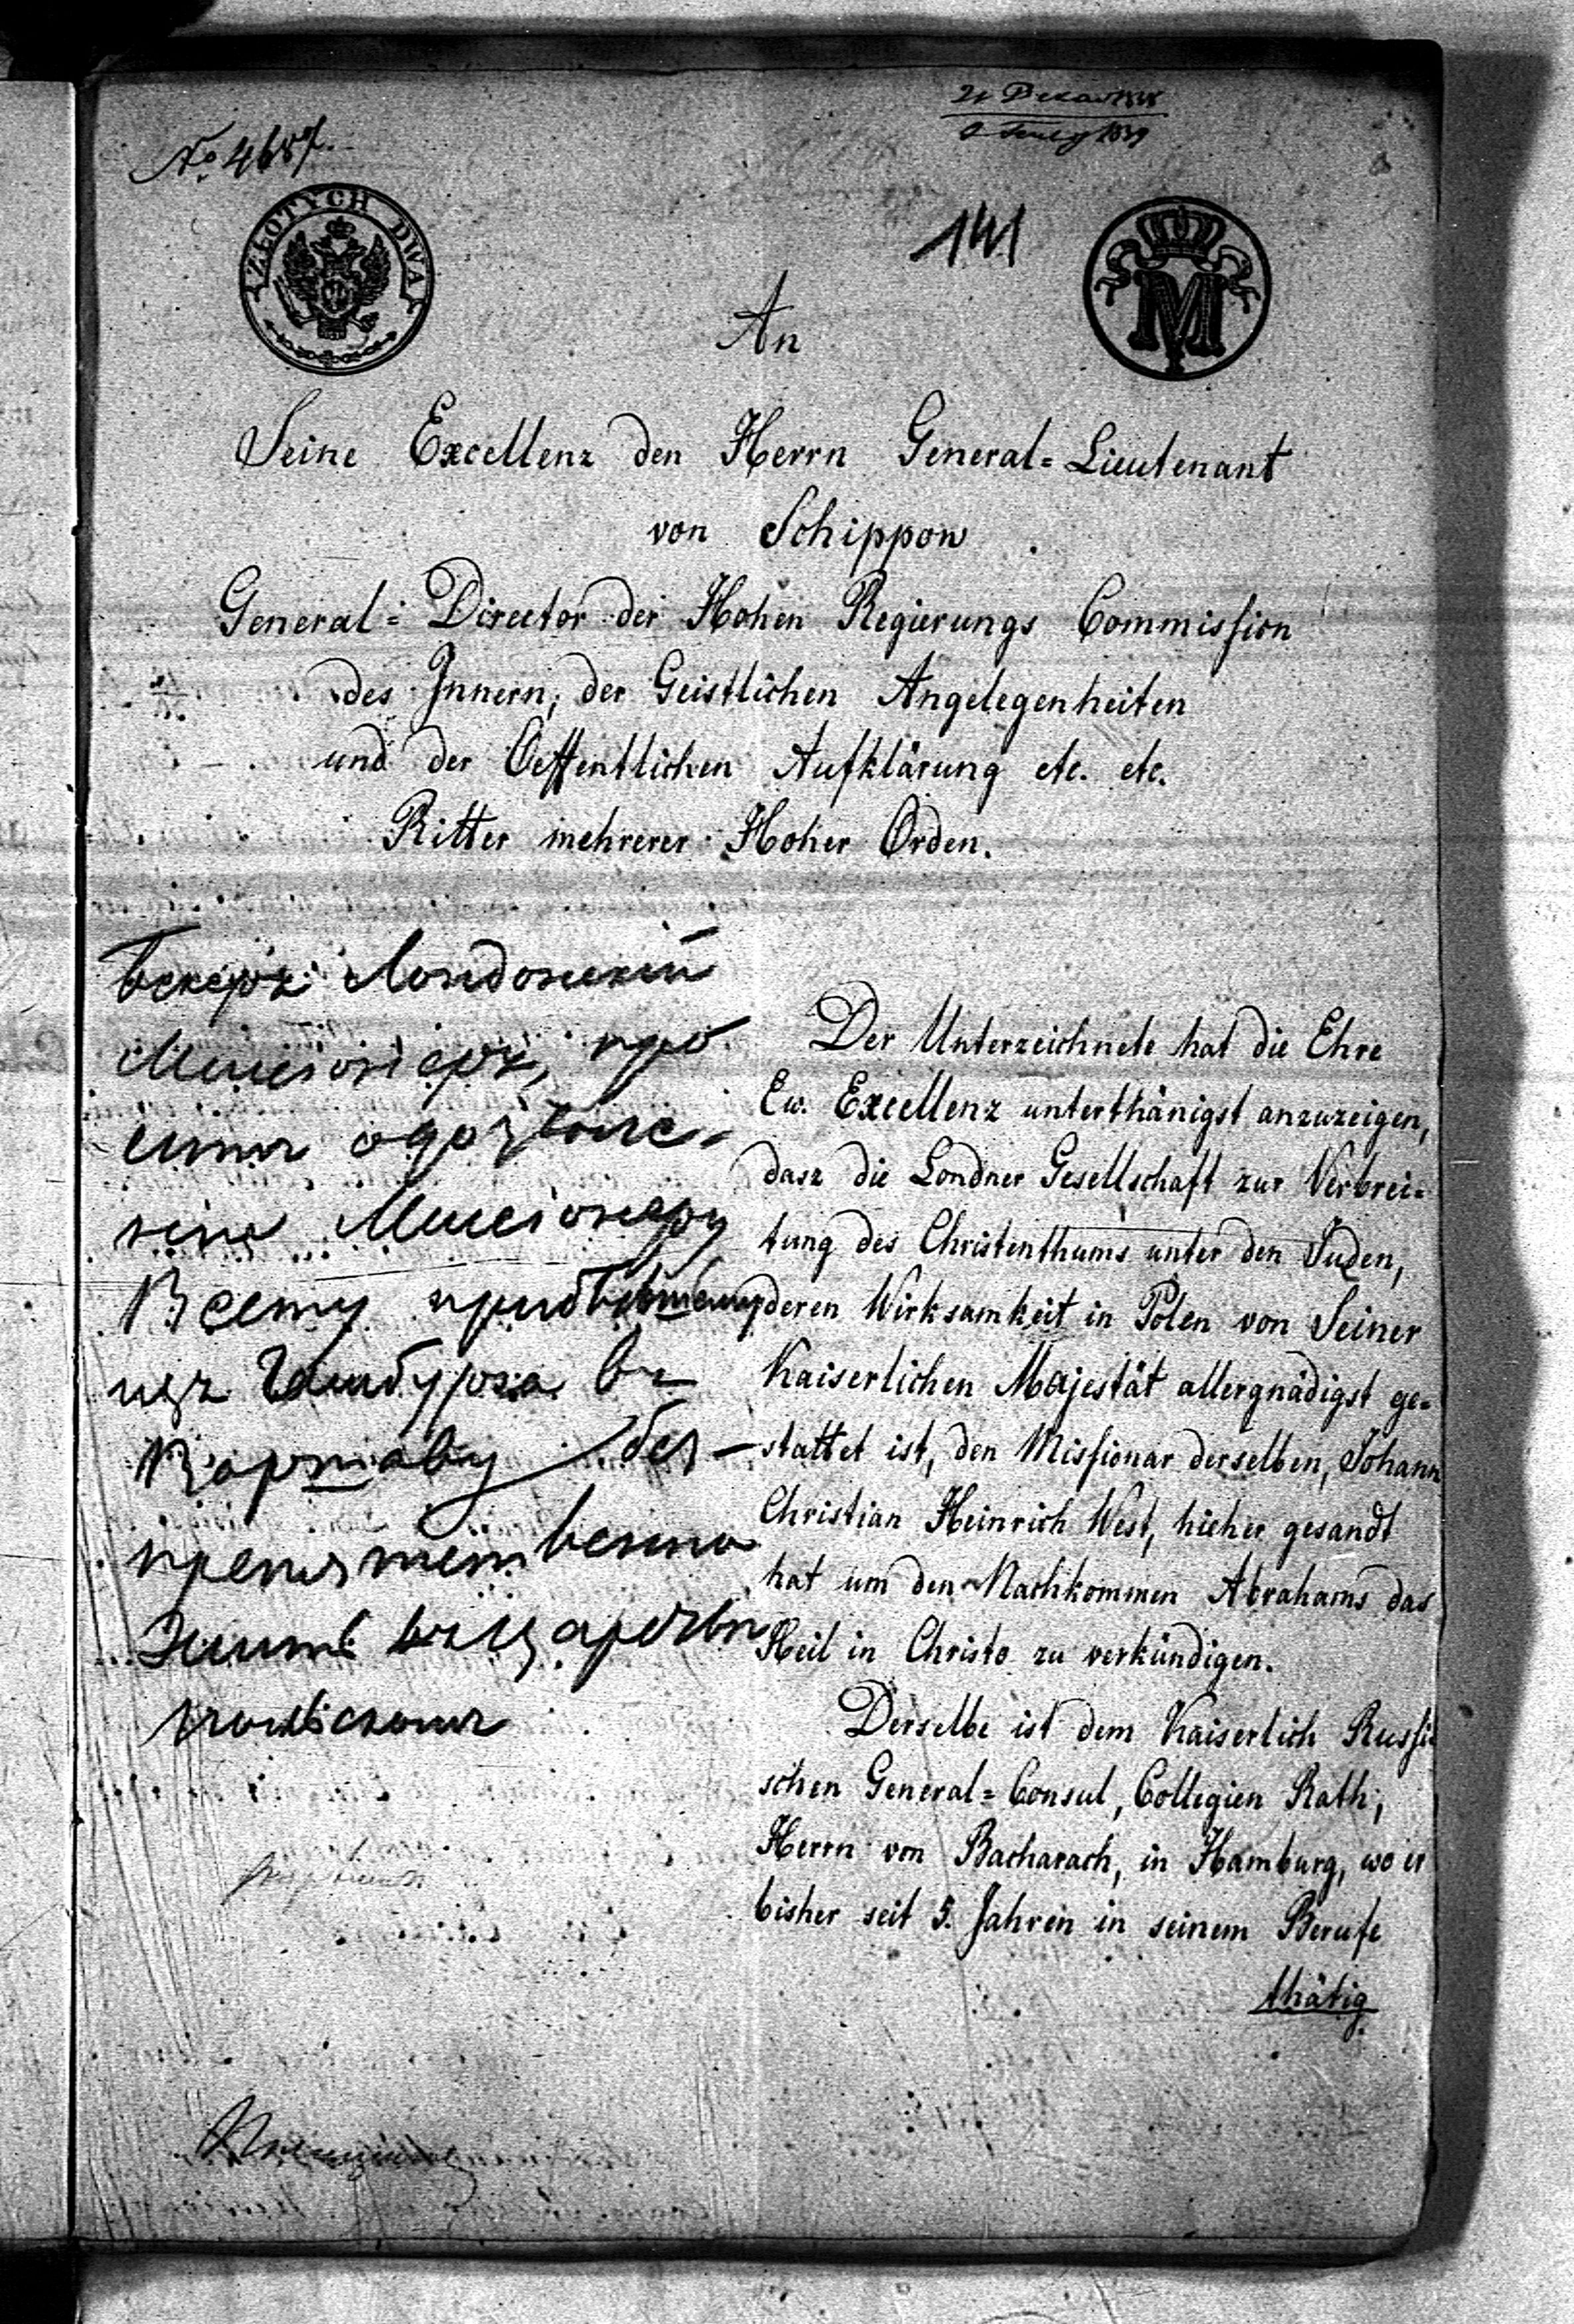 No 4687.
1839
ZŁOTYCH DWA
141
M
An
Seine Excellenz den Herrn General=Lieutenant
von Schippow
General=Director der Hohen Regierungs Commission
des Innern, der Geistlichen Angelegenheiten
und der Oeffentlichen Aufklärung etc. etc.
Ritter mehrerer Hoher Orden.
Бекеръ Лондонскій
Миссіонеръ, про
ситъ о дозволе-
ніи Миссіонеру
Весту прибывшему
изъ Гамбурга въ
Варшаву без-
препятственно
жить въ Царствѣ
Польскомъ
Der Unterzeichnete hat die Ehre
Ew. Excellenz unterthänigst anzuzeigen,
dasz die Londner Gesellschaft zur Verbrei=
tung des Christenthums unter den Juden,
deren Wirksamkeit in Polen von Seiner
Kaiserlichen Majestät allergnädigst ge=
stattet ist, den Missionar derselben, Johann
Christian Heinrich West, hieher gesandt
hat um den Nachkommen Abrahams das
Heil in Christo zu verkündigen.
Derselbe ist dem Kaiserlich Russi
schen General=Consul, Collegien Rath,
Herrn von Bacharach, in Hamburg, wo er
bisher seit 5. Jahren in seinem Berufe
thätig